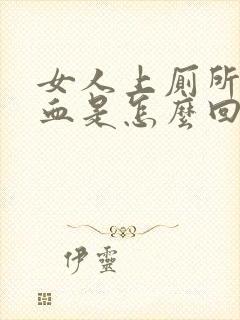 女人上厕所
血是怎麼回
伊靈